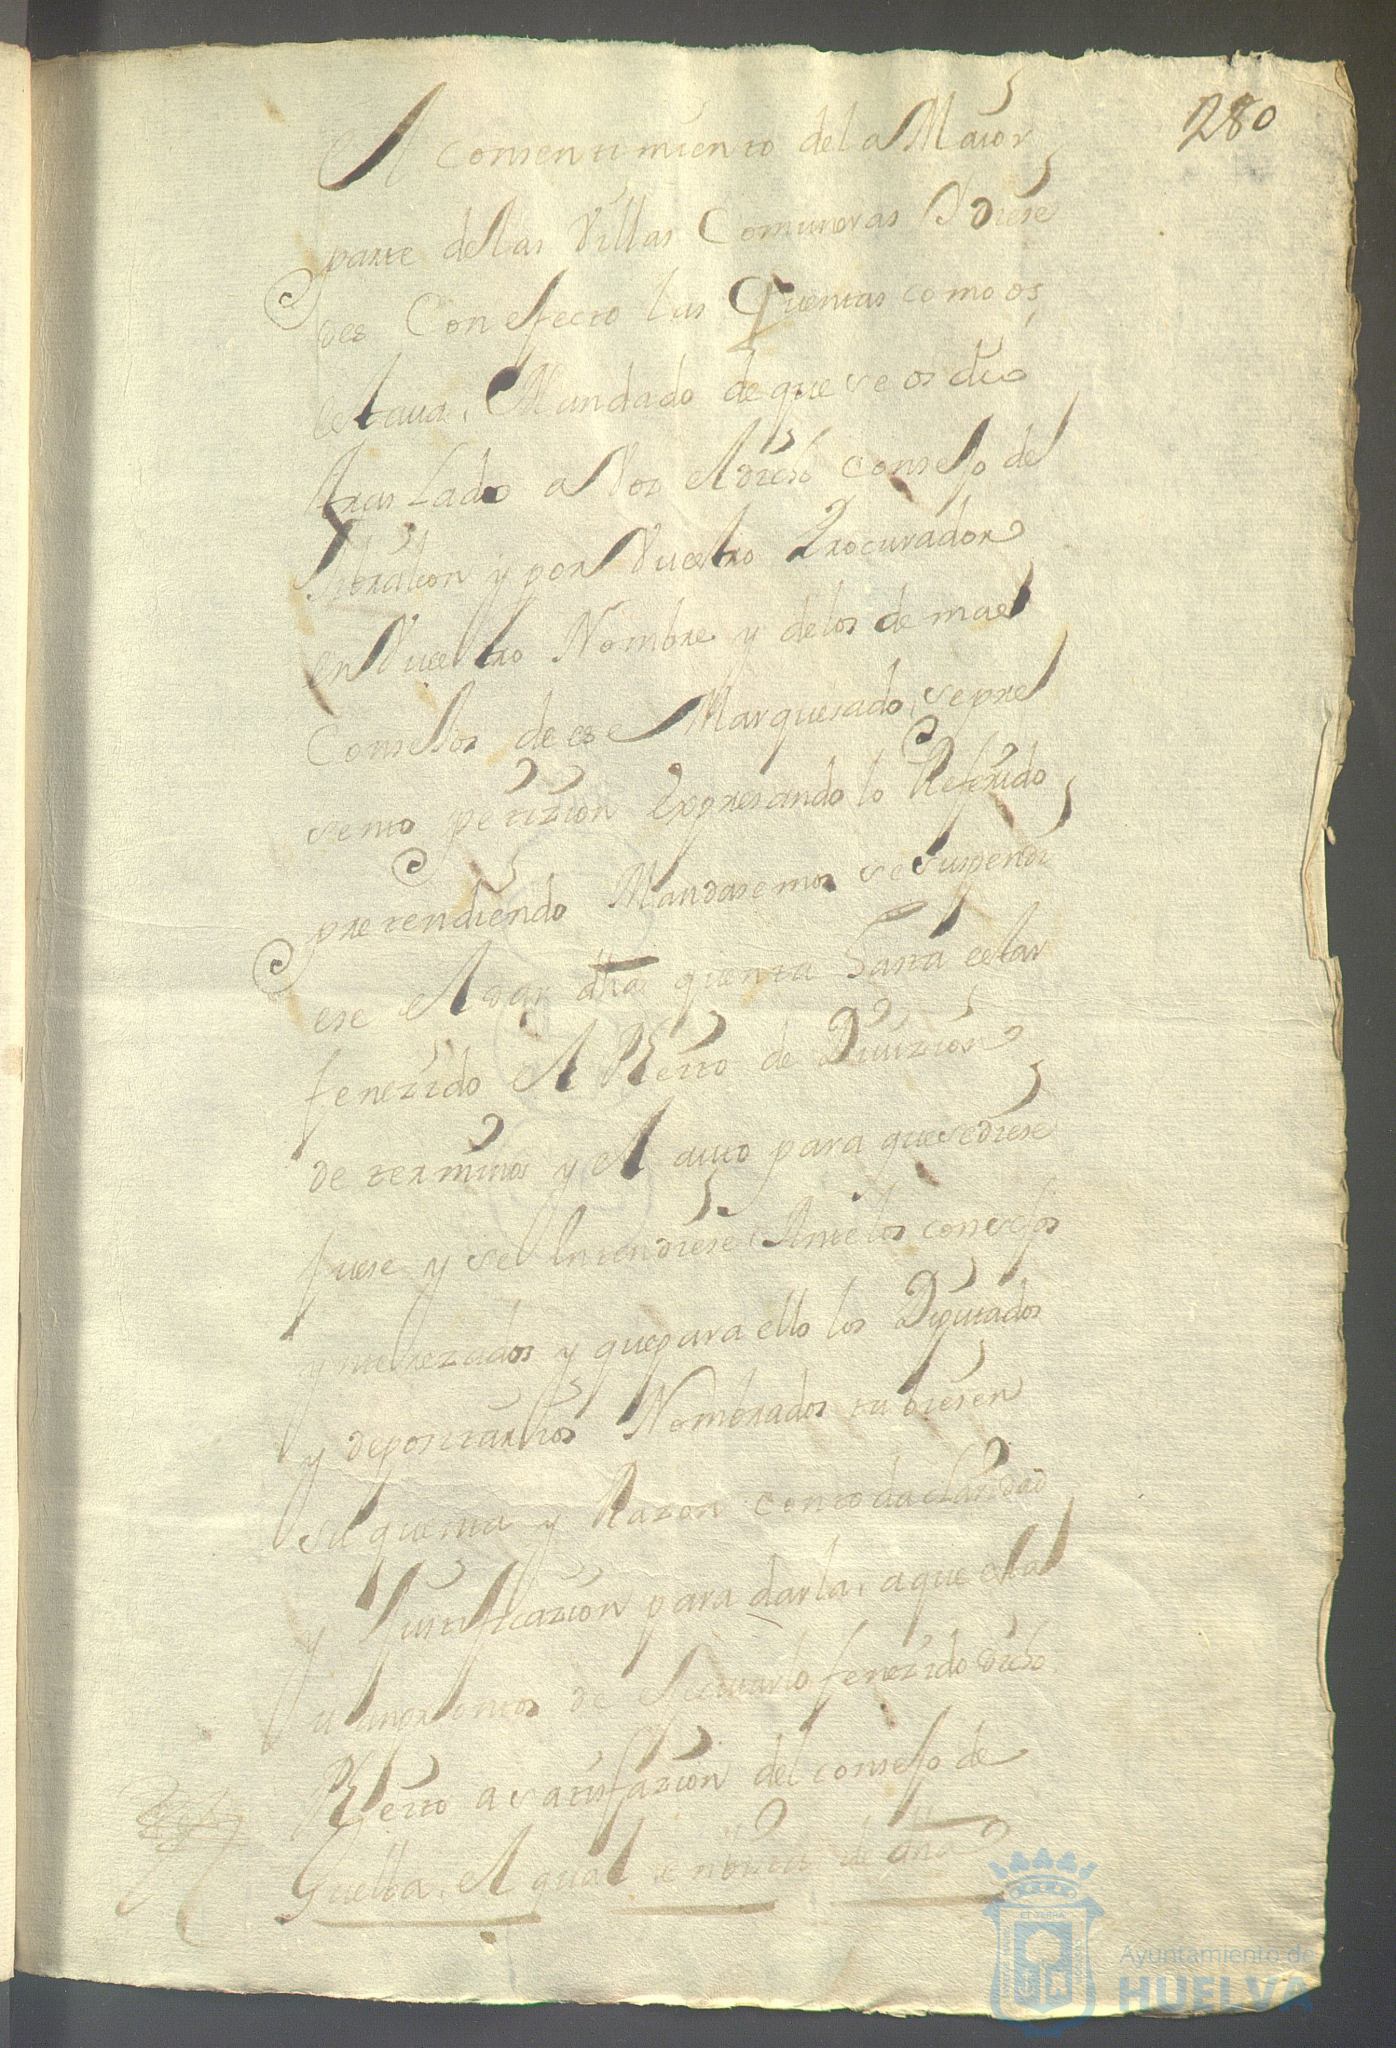 280
El consentimiento de la Maior
parte de las Villas Comuneras Y diese
des Con efecto las Quentas como os
estaua Mandado de que se os dio
traslado a Vos el dicho consejo de
Jibraleon y por Vuestro Procurador
en Vuestro Nombre y de los demas
Consejos de ese Marquesado, se pre
sento petizion Expresando lo Referido
pretendiendo Mandasemos se suspendi
ese el dar dha quenta hasta estar
fenezido el Pleito de Diuizion
de terminos y el auto para que se diese
fuese y se entendiese Ante los consejos
ynterezados y que para ello los Diputados
y depositarios Nombrados tubiesen
su quenta y Razon con toda claridad
y Justificazion para darla, a que esta
uan prontos de executarlo fenezido dicho
Pleito a satisfazion del consejo de
Guelba, el qual en birtud de dha
Ayuntamiento de
HUELVA